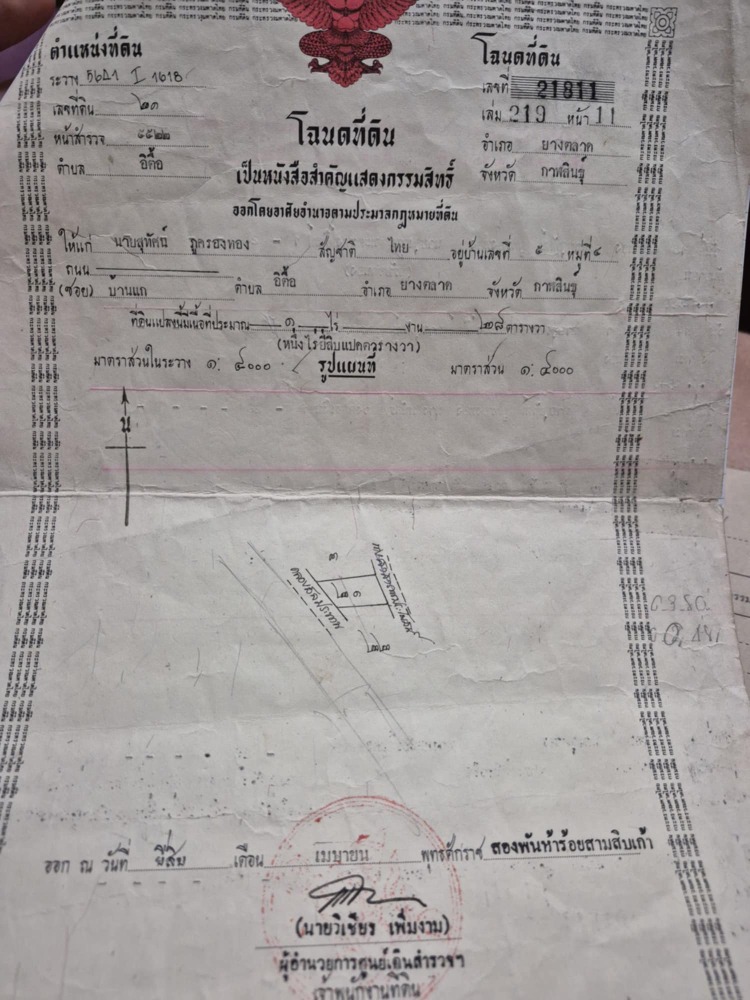 ตำแหน่งที่ดิน
ระวาง 5641 I 1618
เลขที่ดิน ๖๑
หน้าสำรวจ ๑๕๒๒
ตำบล อิตื้อ
โฉนดที่ดิน
เลขที่ 21811
เล่ม 219 หน้า 11
อำเภอ ยางตลาด
จังหวัด กาฬสินธุ์
โฉนดที่ดิน
เป็นหนังสือสำคัญแสดงกรรมสิทธิ์
ออกโดยอาศัยอำนาจตามประมวลกฎหมายที่ดิน
ให้แก่ นายสุทัศน์ ภูครองทอง สัญชาติ ไทย อยู่บ้านเลขที่ ๙ หมู่ที่ ๔
ถนน
(ซอย) บ้านแก ตำบล อิตื้อ อำเภอ ยางตลาด จังหวัด กาฬสินธุ์
ที่ดินแปลงนี้มีเนื้อที่ประมาณ ๑ ไร่ งาน ๒๘ ตารางวา
(หนึ่งไร่ยี่สิบแปดตารางวา)
มาตราส่วนในระวาง ๑: ๔๐๐๐ รูปแผนที่ มาตราส่วน ๑: ๔๐๐๐
น
คลองชลประทาน
ออก ณ วันที่ ยี่สิบ เดือน เมษายน พุทธศักราช สองพันห้าร้อยสามสิบเก้า
(นายวิเชียร เพิ่มงาม)
ผู้อำนวยการศูนย์เดินสำรวจฯ
เจ้าพนักงานที่ดิน